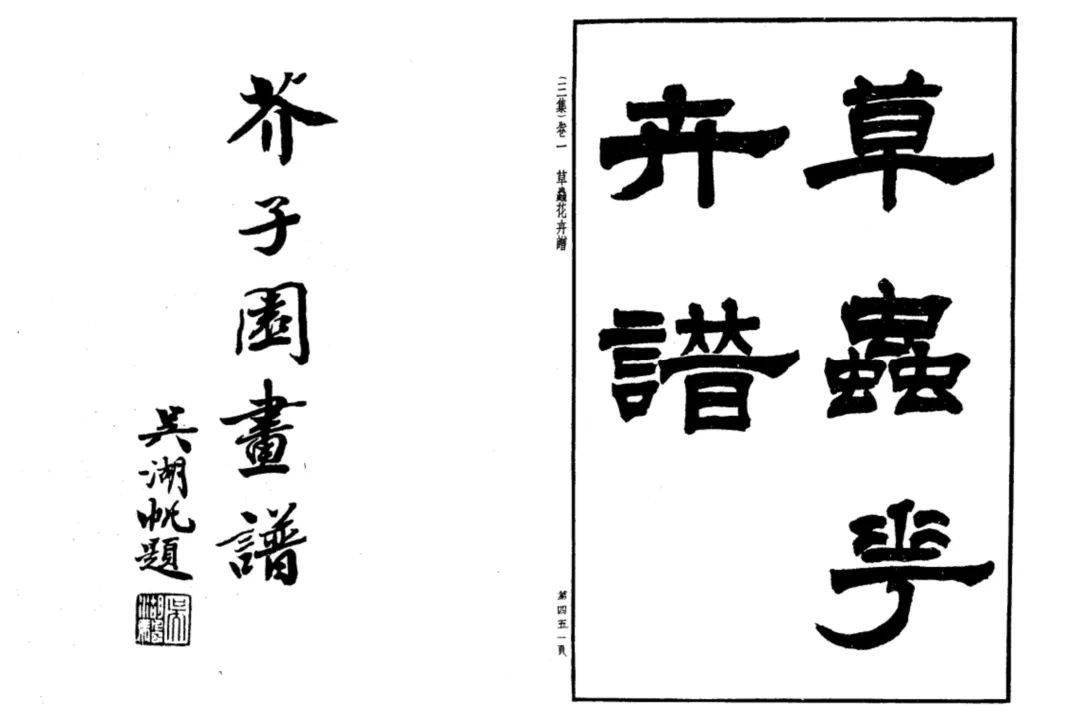 草蟲華
卉譜
（三集）卷一　草蟲花卉譜
第四五一頁
芥子園畫譜
吳湖帆題